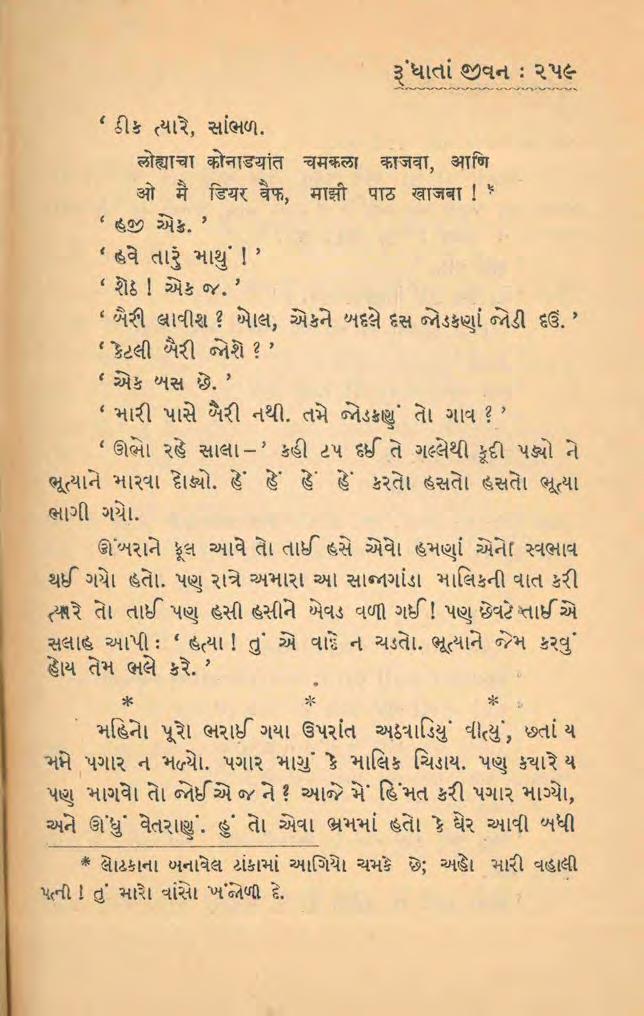 રૂંધાતાં જીવન : ૨૫૯
‘ ઠીક ત્યારે, સાંભળ.
लोह्याचा कोनाडयांत चमकला काजवा, आणि
ओ मै डियर वैफ, माझी पाठ खाजबा ! *
‘ હજી એક. ’
‘ હવે તારું માથું ! ’
‘ શેઠ ! એક જ. ’
‘ બૈરી લાવીશ ? બોલ, એકને બદલે દસ જોડકણાં જોડી દઉં. ’
‘ કેટલી બૈરી જોશે ? ’
‘ એક બસ છે. ’
‘ મારી પાસે બૈરી નથી. તમે જોડકણું તો ગાવ ? ’
‘ ઊભો રહે સાલા – ’ કહી ટપ દઈ તે ગલ્લેથી કૂદી પડ્યો ને
ભૂત્યાને મારવા દોડ્યો. હેં હેં હેં હેં કરતો હસતો હસતો ભૂત્યા
ભાગી ગયો.
ઊંબરાને ફૂલ આવે તો તાઈ હસે એવો હમણાં એનો સ્વભાવ
થઈ ગયો હતો. પણ રાત્રે અમારા આ સાજાગાંડા માલિકની વાત કરી
ત્યારે તો તાઈ પણ હસી હસીને બેવડ વળી ગઈ! પણ છેવટે તાઈએ
સલાહ આપી : ‘ હત્યા ! તું એ વાદે ન ચડતો. ભૂત્યાને જેમ કરવું
હોય તેમ ભલે કરે. ’
* * *
મહિનો પૂરો ભરાઈ ગયા ઉપરાંત અઠવાડિયું વીત્યું, છતાં ય
મને પગાર ન મળ્યો. પગાર માગું કે માલિક ચિડાય. પણ ક્યારે ય
પણ માગવો તો જોઈએ જ ને ? આજે મેં હિંમત કરી પગાર માગ્યો,
અને ઊંધું વેતરાણું. હું તો એવા ભ્રમમાં હતો કે ઘેર આવી બધી
* લોઢકાના બનાવેલ ટાંકામાં આગિયો ચમકે છે; અહો મારી વહાલી
પત્ની ! તું મારો વાંસો ખંજોળી દે.